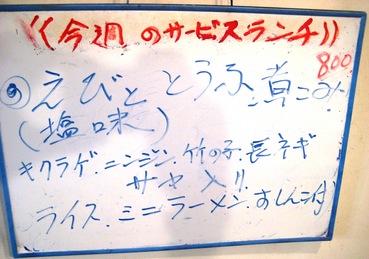 ((今週のサービスランチ))
800
◎えびととうふ煮こみ
(塩味)
キクラゲ.ニンジン.竹の子.長ネギ
サヤ入リ
ライス.ミニラーメン.おしんこ付